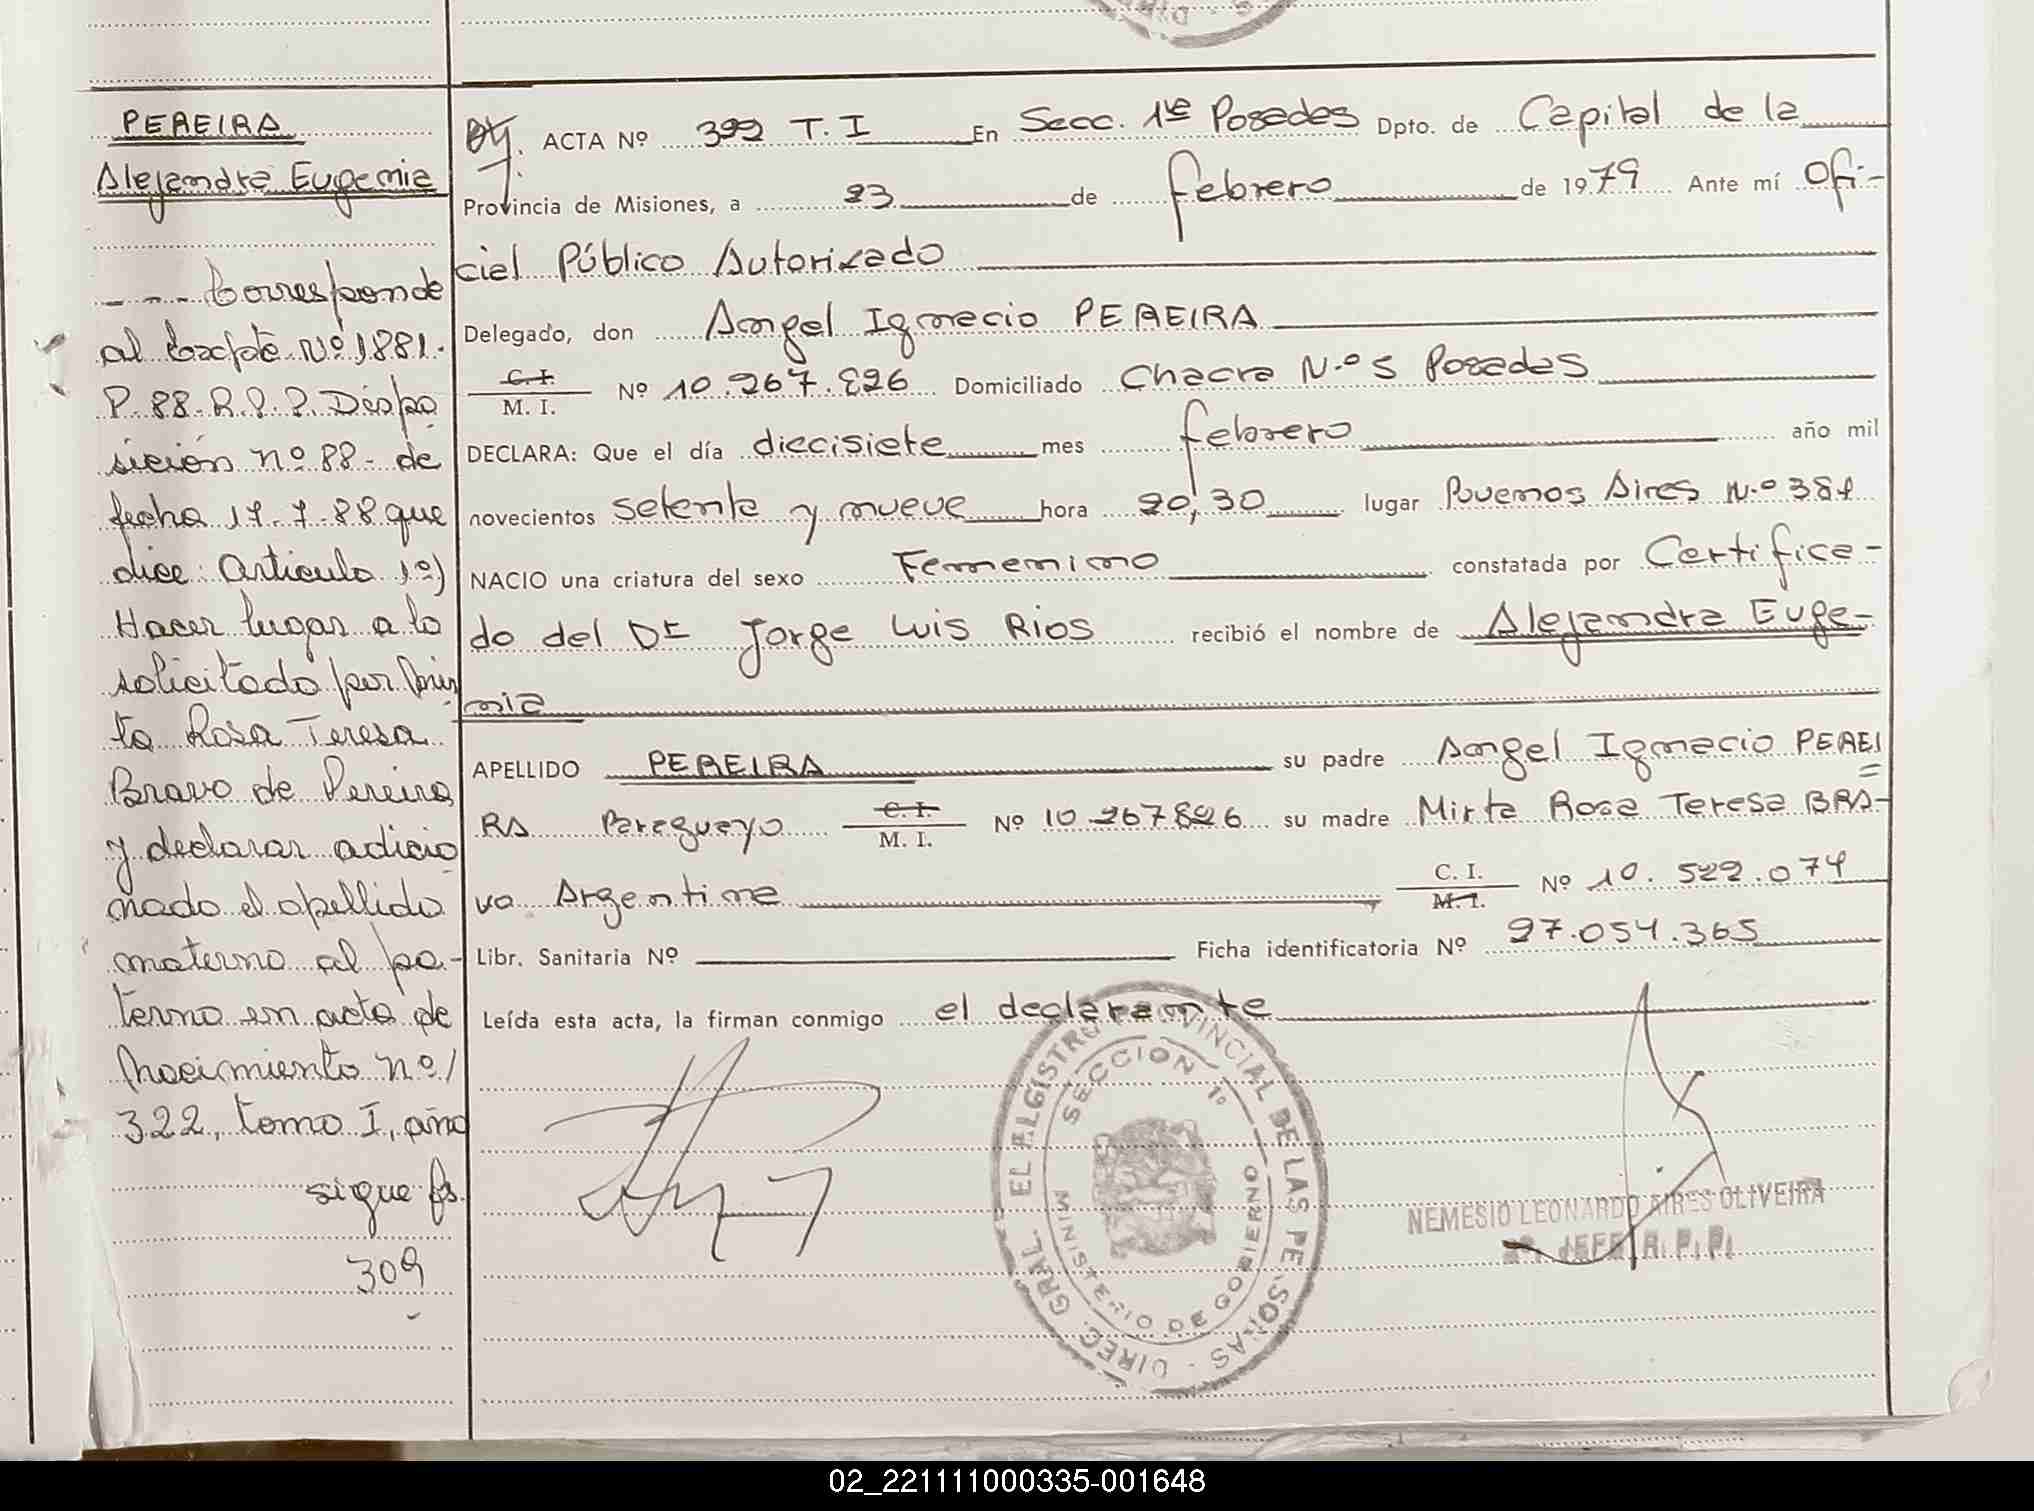 PEREIRA
Alejandra Eugenia
--- Corresponde
al Expte Nº 1881-
P-88-R.P.P. Dispo
sición nº 88- de
fecha 17-7-88 que
dice: Artículo 1º)
Hacer lugar a lo
solicitado por Mir
ta Rosa Teresa
Bravo de Pereira
y declarar adicio
nado el apellido
materno al pa-
terno en acta de
Nacimiento nº
322, tomo I, año
sigue fs.
309
ACTA Nº 322 T. I En Secc. 1ra Posadas Dpto. de Capital de la
Provincia de Misiones, a 23 de febrero de 1979 Ante mí Ofi-
cial Público Autorizado
Delegado, don Angel Ignacio PEREIRA
C. I.
M. I. Nº 10.267.826 Domiciliado Chacra N.º 5 Posadas
DECLARA: Que el día diecisiete mes febrero año mil
novecientos setenta y nueve hora 20,30 lugar Buenos Aires N.º 381
NACIO una criatura del sexo Femenino constatada por Certifica-
do del Dr Jorge Luis Rios recibió el nombre de Alejandra Euge-
nia
APELLIDO PEREIRA su padre Angel Ignacio PEREI
RA Paraguayo C. I. M. I. Nº 10.267826 su madre Mirta Rosa Teresa BRA-
vo Argentina C. I. M. I. Nº 10.522.074
Libr. Sanitaria Nº Ficha identificatoria Nº 27.054.365
Leída esta acta, la firman conmigo el declarante
DIREC. GRAL. EL REGISTRO PROVINCIAL DE LAS PERSONAS
SECCION 1º
MINISTERIO DE GOBIERNO
NEMESIO LEONARDO AIRES OLIVEIRA
JEFE R. P. P.
02_221111000335-001648